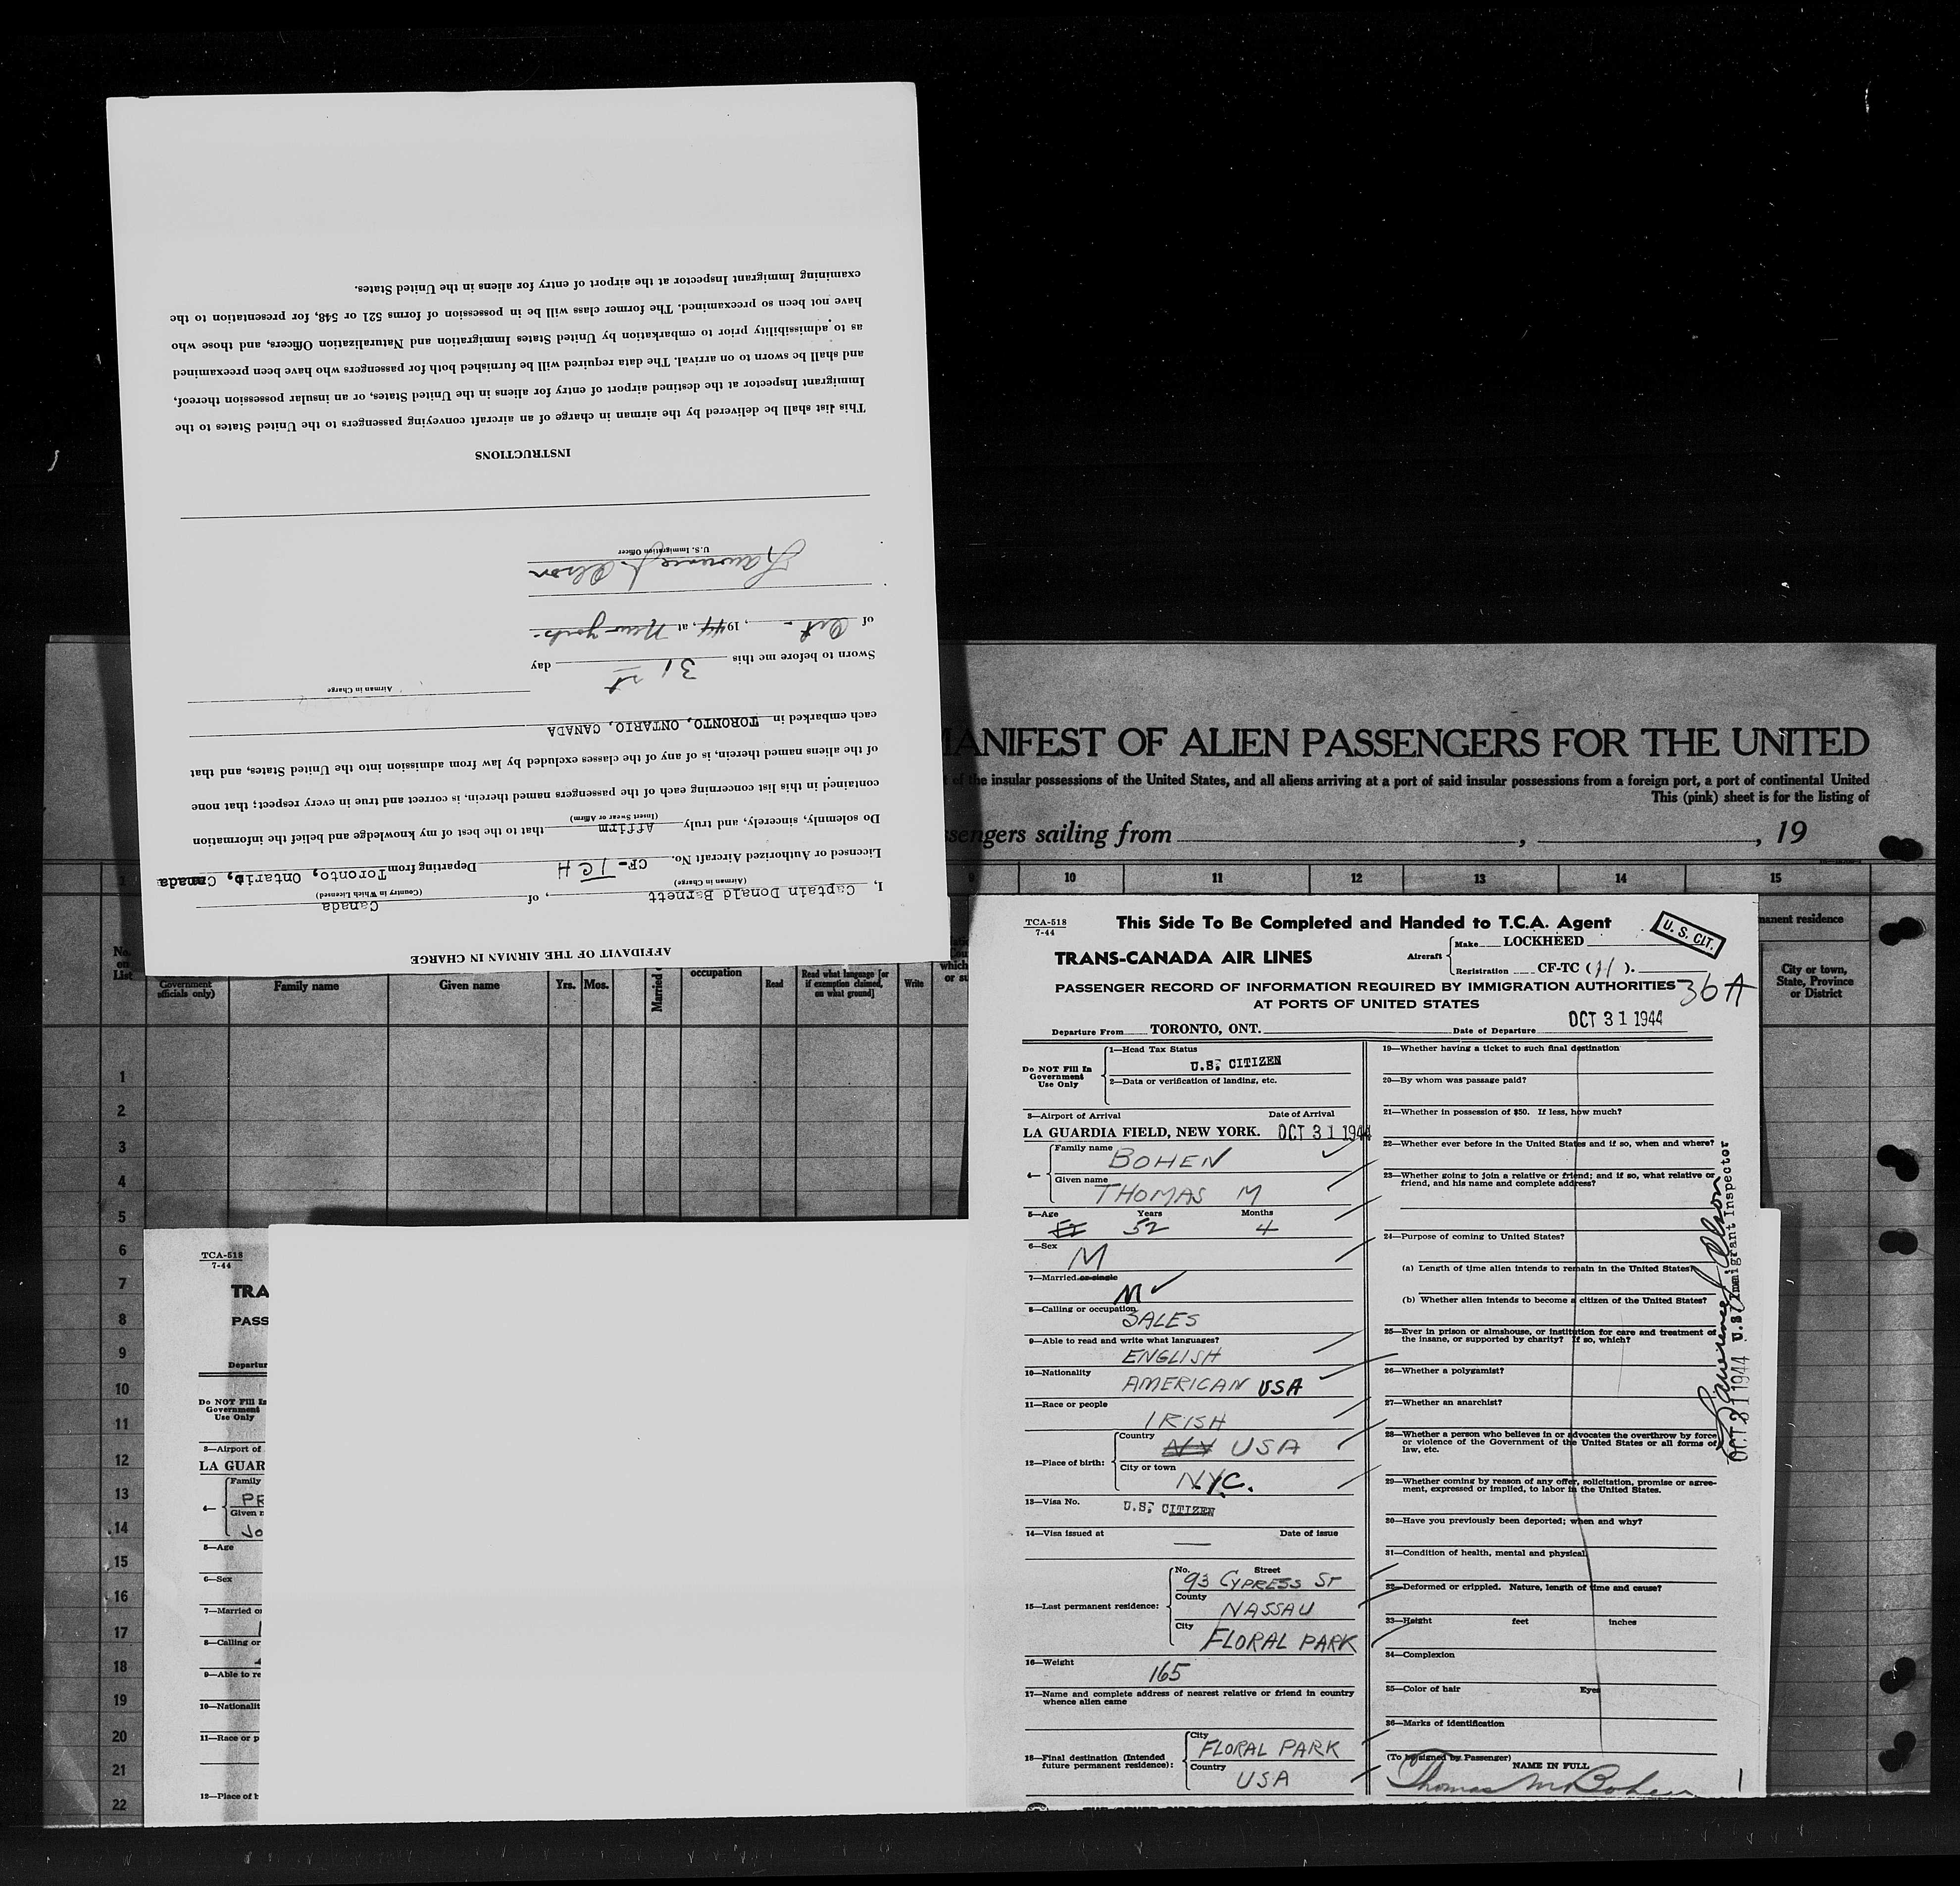 AFFIDAVIT OF THE AIRMAN IN CHARGE
I, Captain Donald Barnett, of Canada
(Airman in Charge) (Country in Which Licensed)
Licensed or Authorized Aircraft No. CF-TCH Departing from Toronto, Ontario, Canada
Do solemnly, sincerely, and truly Affirm that to the best of my knowledge and belief the information
(Insert Swear or Affirm)
contained in this list concerning each of the passengers named therein, is correct and true in every respect; that none
of the aliens named therein, is of any of the classes excluded by law from admission into the United States, and that
each embarked in TORONTO, ONTARIO, CANADA
Airman in Charge
Sworn to before me this 31st day
of Oct-, 1944, at New York-
Lawrence J. Olson
U.S. Immigration Officer
INSTRUCTIONS
This list shall be delivered by the airman in charge of an aircraft conveying passengers to the United States to the
Immigrant Inspector at the destined airport of entry for aliens in the United States, or an insular possession thereof,
and shall be sworn to on arrival. The data required will be furnished both for passengers who have been preexamined
as to admissibility prior to embarkation by United States Immigration and Naturalization Officers, and those who
have not been so preexamined. The former class will be in possession of forms 521 or 548, for presentation to the
examining Immigrant Inspector at the airport of entry for aliens in the United States.
ANIFEST OF ALIEN PASSENGERS FOR THE UNITED
of the insular possessions of the United States, and all aliens arriving at a port of said insular possessions from a foreign port, a port of continental United
This (pink) sheet is for the listing of
ssengers sailing from , 19
9 10 11 12 13 14 15
manent residence
No. on List
Government officials only)
Family name
Given name
Yrs. Mos.
Married
occupation
Read
Read what language [or if exemption claimed, on what ground]
Write
City or town, State, Province or District
1
2
3
4
5
6
7
8
9
10
11
12
13
14
15
16
17
18
19
20
21
22
TCA-518
7-44
TRA
PASS
Departur
Do NOT Fill In
Government
Use Only
3—Airport of
LA GUAR
Family
4— PR
Given n
Jo
5—Age
6—Sex
7—Married o
8—Calling or
9—Able to re
10—Nationalit
11—Race or p
12—Place of b
TCA-518
7-44
This Side To Be Completed and Handed to T.C.A. Agent
U. S. CIT.
TRANS-CANADA AIR LINES
Aircraft Make LOCKHEED
Registration CF-TC (H).
PASSENGER RECORD OF INFORMATION REQUIRED BY IMMIGRATION AUTHORITIES
36A
AT PORTS OF UNITED STATES
Departure From TORONTO, ONT. Date of Departure OCT 31 1944
Do NOT Fill In
Government
Use Only
1—Head Tax Status
U.S. CITIZEN
2—Data or verification of landing, etc.
3—Airport of Arrival Date of Arrival
LA GUARDIA FIELD, NEW YORK. OCT 31 1944
4— Family name
BOHEN
Given name
THOMAS M
5—Age Years Months
52 4
6—Sex
M
7—Married or single
M
8—Calling or occupation
SALES
9—Able to read and write what languages?
ENGLISH
10—Nationality
AMERICAN USA
11—Race or people
IRISH
12—Place of birth:
Country
NY USA
City or town
N.Y.C.
13—Visa No.
U.S. CITIZEN
14—Visa issued at Date of issue
15—Last permanent residence:
No. Street
93 CYPRESS ST
County
NASSAU
City
FLORAL PARK
16—Weight
165
17—Name and complete address of nearest relative or friend in country
whence alien came
18—Final destination (Intended
future permanent residence):
City
FLORAL PARK
Country
USA
19—Whether having a ticket to such final destination
20—By whom was passage paid?
21—Whether in possession of $50. If less, how much?
22—Whether ever before in the United States and if so, when and where?
23—Whether going to join a relative or friend; and if so, what relative or
friend, and his name and complete address?
24—Purpose of coming to United States?
(a) Length of time alien intends to remain in the United States?
(b) Whether alien intends to become a citizen of the United States?
25—Ever in prison or almshouse, or institution for care and treatment of
the insane, or supported by charity? If so, which?
26—Whether a polygamist?
27—Whether an anarchist?
28—Whether a person who believes in or advocates the overthrow by force
or violence of the Government of the United States or all forms of
law, etc.
29—Whether coming by reason of any offer, solicitation, promise or agree-
ment, expressed or implied, to labor in the United States.
30—Have you previously been deported; when and why?
31—Condition of health, mental and physical
32—Deformed or crippled. Nature, length of time and cause?
33—Height feet inches
34—Complexion
35—Color of hair Eyes
36—Marks of identification
(To be signed by Passenger) NAME IN FULL
Thomas M Bohen
1
Lawrence J. Olson
OCT 31 1944 U.S. Immigrant Inspector